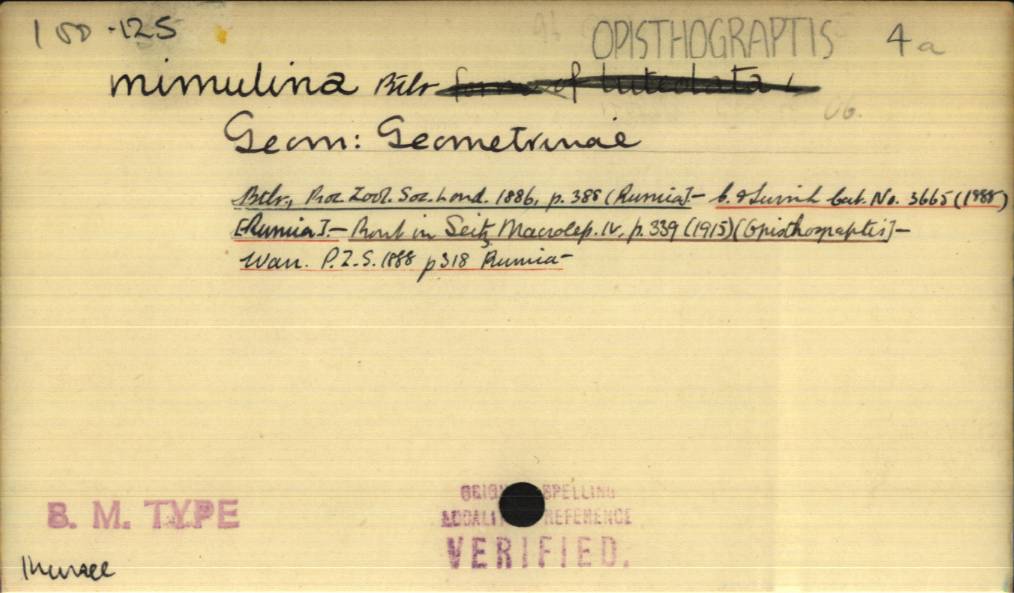 100-125 OPISTHOGRAPTIS 4a
mimulina Btlr form of luteolata L
Geom: Geometrinae
Btlr, Proc. Zool. Soc. Lond. 1886, p. 388 (Rumia] - C. & Swinh Cat. No. 3665 (1888)
[Rumia] - Prout in Seitz Macrolep. IV. p. 339 (1915) (Opisthograptis] -
Warr. P.Z.S. 1888 p 318 Rumia -
B. M. TYPE
SPELLING
REFERENCE
VERIFIED.